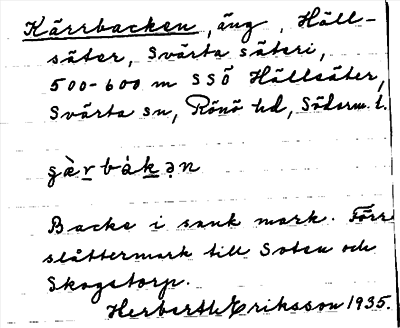 Kärrbacken, äng, Häll-
säter, Svärta säteri,
500-600 m SSÖ Hällsäter,
Svärta sn, Rönö hd, Söderm. l.
gàrbàkən
Backe i sank mark. Förr
slåttermark till Sotsa och
Skogstorp.
Herberth Eriksson 1935.